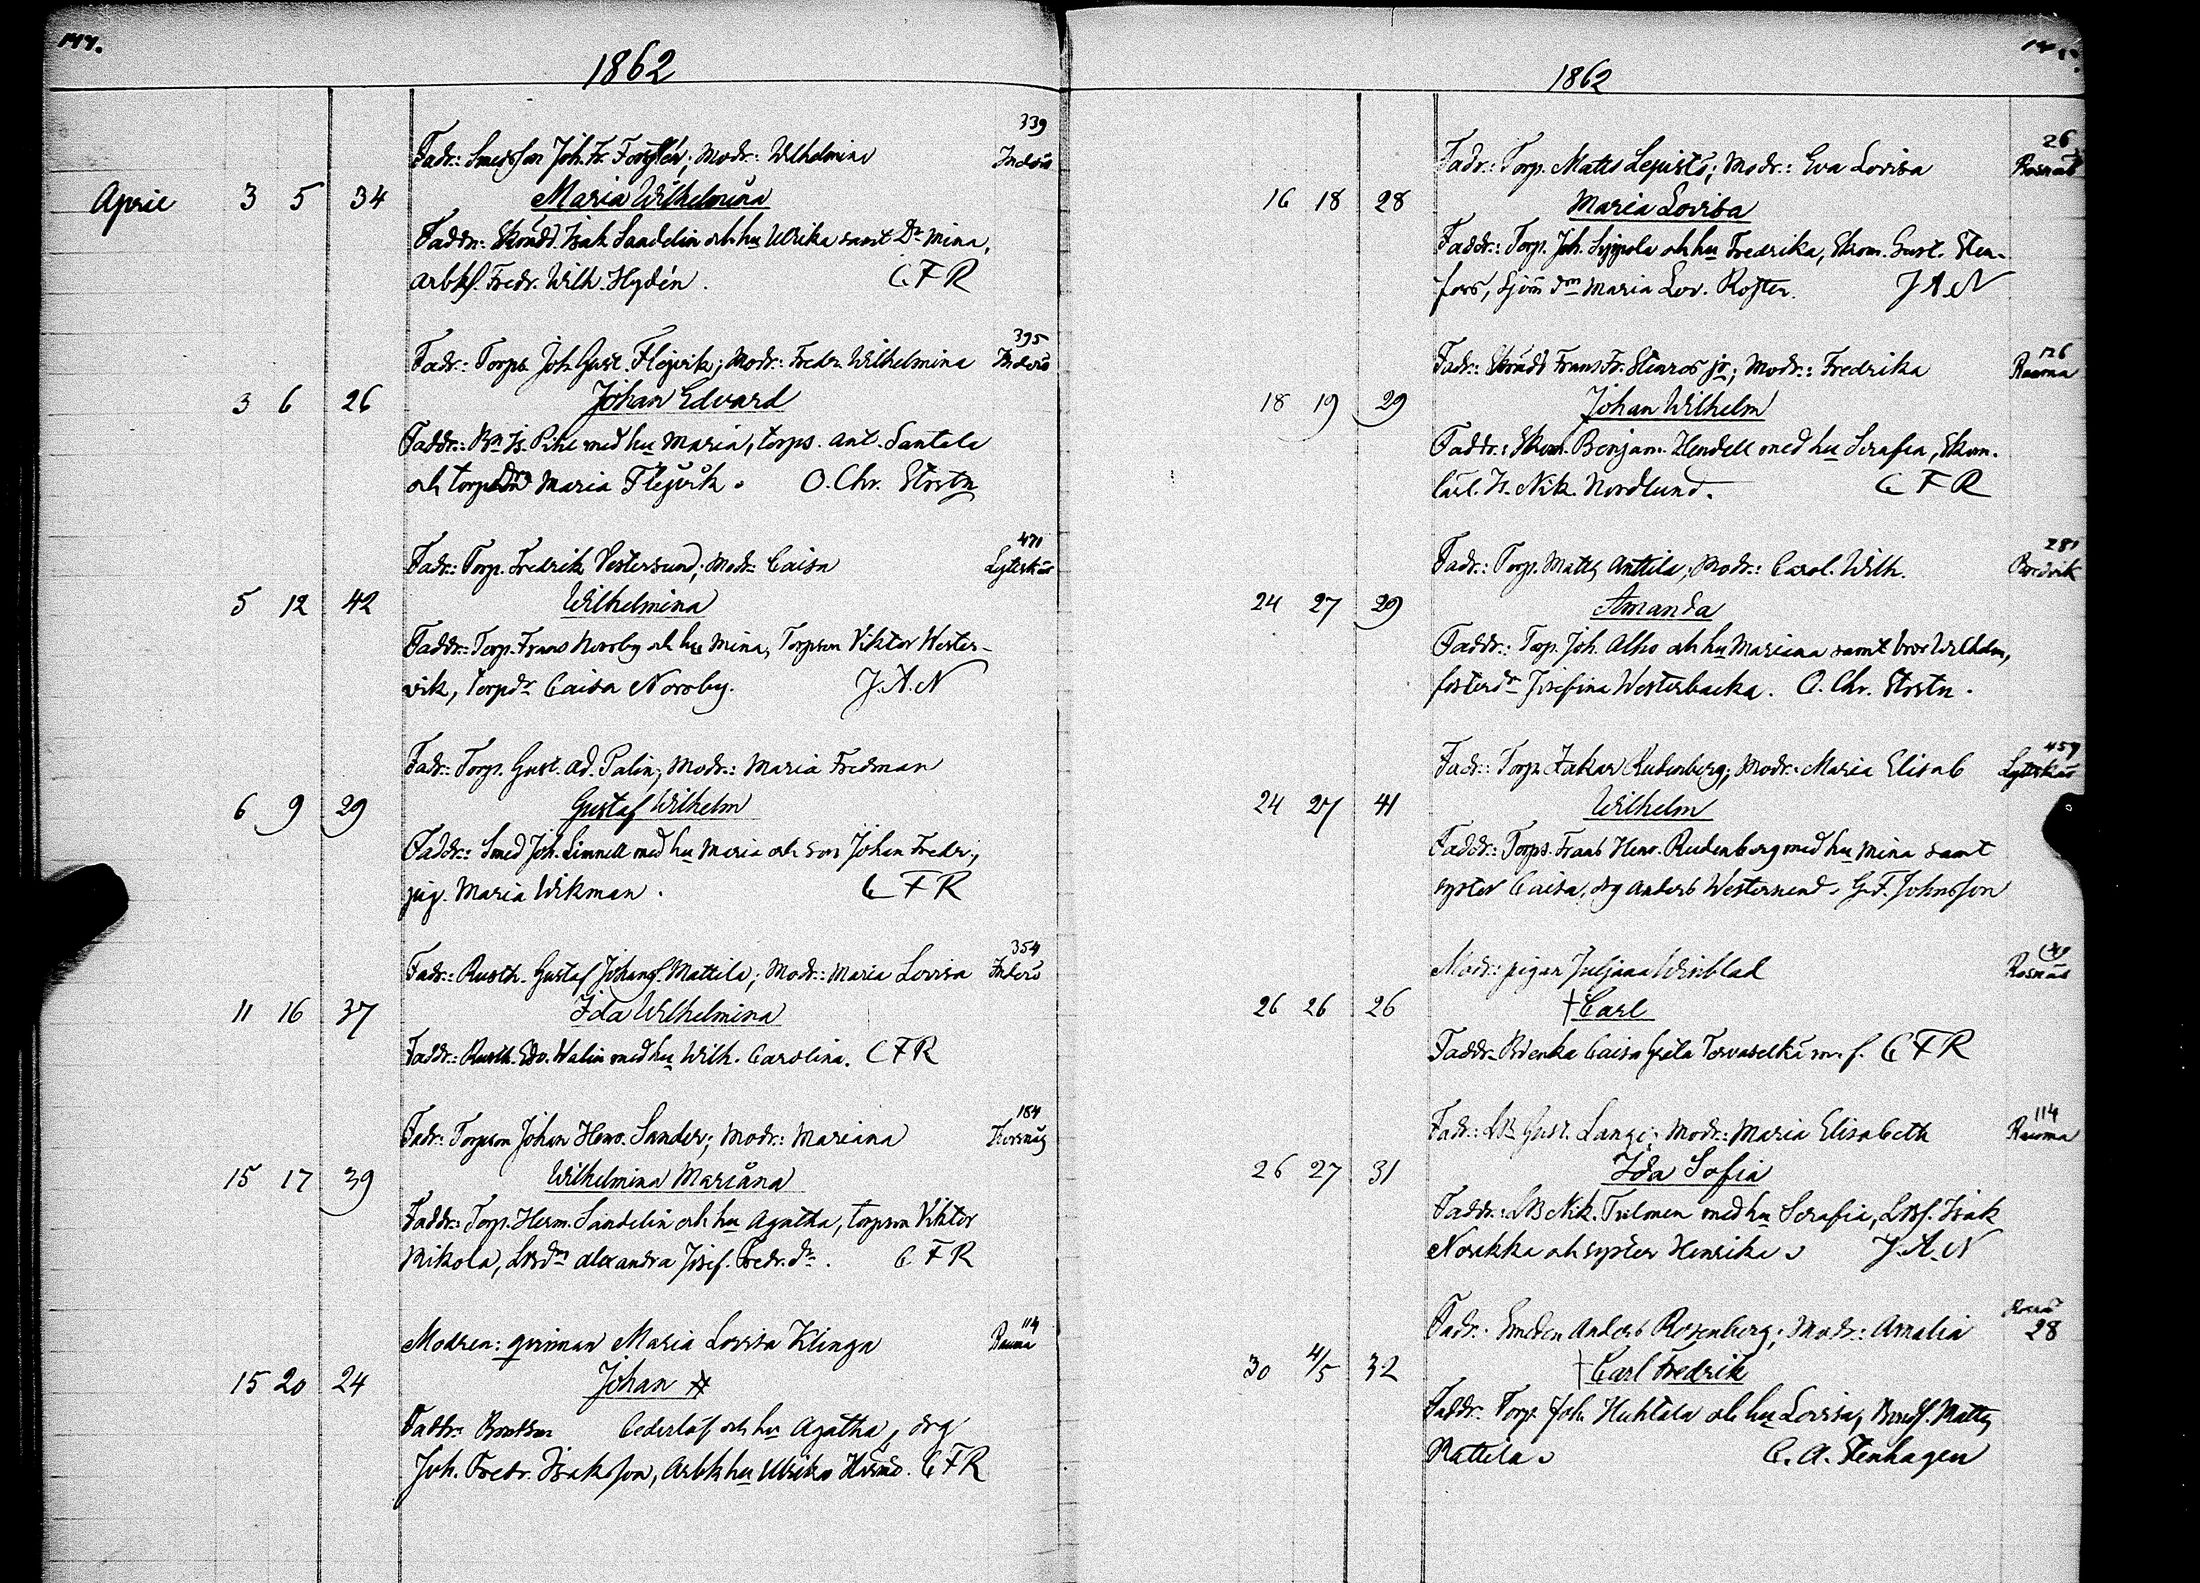 144.
1862
339
Fadr: Smedsson Joh. Fr. Forsslén; Modr: Wilhelmina Inderö
April 3 5 34 Maria Wilhelmina
Faddr: Skomd. Isak Sandelin och hu Ulrika samt Dr Mina,
arbkf. Fredr. Wilh. Hydén. C F R
395
Fadr: Torps Joh. Gust. Flejvik; Modr: Fredr. Wilhelmina Inderö
3 6 26 Johan Edvard
Faddr: Bn Is. Pihl med hu Maria, torps. Ant. Santala
och Maria Flejvik. O. Chr. Strstn
471
Fadr: Torp. Fredrik Vestersund; Modr: Caisa Lyttskär
5 12 42 Wilhelmina
Faddr: Torp. Frans Norrby och hu Mina, Torpson Viktor Wester-
vik, Torpdr Caisa Norrby. J. A. N
Fadr: Torp. Gust. Ad. Palin; Modr: Maria Fredman
6 9 29 Gustaf Wilhelm
Faddr: Smed Joh. Linnell med hu Maria och son Johan Fredr,
pig. Maria Wikman. C F R
354
Fadr: Rusth. Gustaf Johansf. Mattila; Modr: Maria Lovisa Inderö
11 16 37 Ida Wilhelmina
Faddr: Rusth. Edv. Walin med hu Wilh. Carolina. C F R
184
Fadr: Torpson Johan Henr. Sander; Modr: Mariana
15 17 39 Wilhelmina Mariana
Faddr: Torp. Herm. Sandelin och hu Agatha, torpson Viktor
Mikola, Lbdr Alexandra Josef. Fredr. dr. C F R
114
Modren: qvinnan Maria Lovisa Klinga Rauma
15 20 24 Johan
Faddr: Cederlöf och hu Agatha, drg
Joh. Fredr. Isaksson, Arbk hu Ulrika C F R
1862
26
Fadr: Torp. Matts Lepistö; Modr: Eva Lovisa Rosnäs
16 18 28 Maria Lovisa
Faddr: Torp. Joh. Syppola och hu Fredrika, Skom. Gust. Sten-
fors, Sjöm drn Maria Lov. Roster. J A N
126
Fadr: Skrädd Frans Fr. Stenros jr; Modr: Fredrika Rauma
18 19 29 Johan Wilhelm
Faddr: Skom. Benjam. Hendell med hu Serafia, Skom.
lärl. Is. Nik. Nordlund. C F R
281
Fadr: Torp. Matts Anttila; Modr: Carol. Wilh. Bredvik
24 27 29 Amanda
Faddr: Torp. Joh. Alho och hu Mariana samt bror Wilhelm,
fosterdr Josefina Westerbacka. O. Chr. Strstn.
459
Fadr: Torp. Zakar Rudenberg; Modr: Maria Elisab Lyttskär
24 27 41 Wilhelm
Faddr: Torps. Frans Henr. Rudenberg med hu Mina samt
syster Caisa, drg Anders Westerlund. G. F. Johnsson
Modr: pigan Juljana Winblad Rosnäs
26 26 26 † Carl
Faddr: Caisa Greta Tervaselkä m. f. C F R
114
Fadr: Lb Gust. Lange; Modr: Maria Elisabeth Rauma
26 27 31 Ida Sofia
Faddr: Lb Nik. Tulonen med hu Serafia, Lbsf. Isak
Norikka och syster Henrika J. A. N
Fadr: Smeden Anders Rosenberg; Modr: Amalia 28
30 4/5 32 † Carl Fredrik
Faddr: Torp. Joh. Huhtala och hu Lovisa, Matts
Mattila C. A. Stenhagen